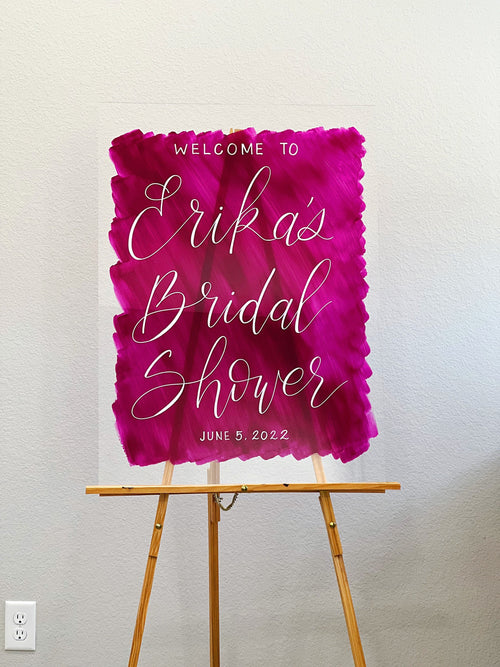 WELCOME TO
Erika's
Bridal
Shower
JUNE 5, 2022